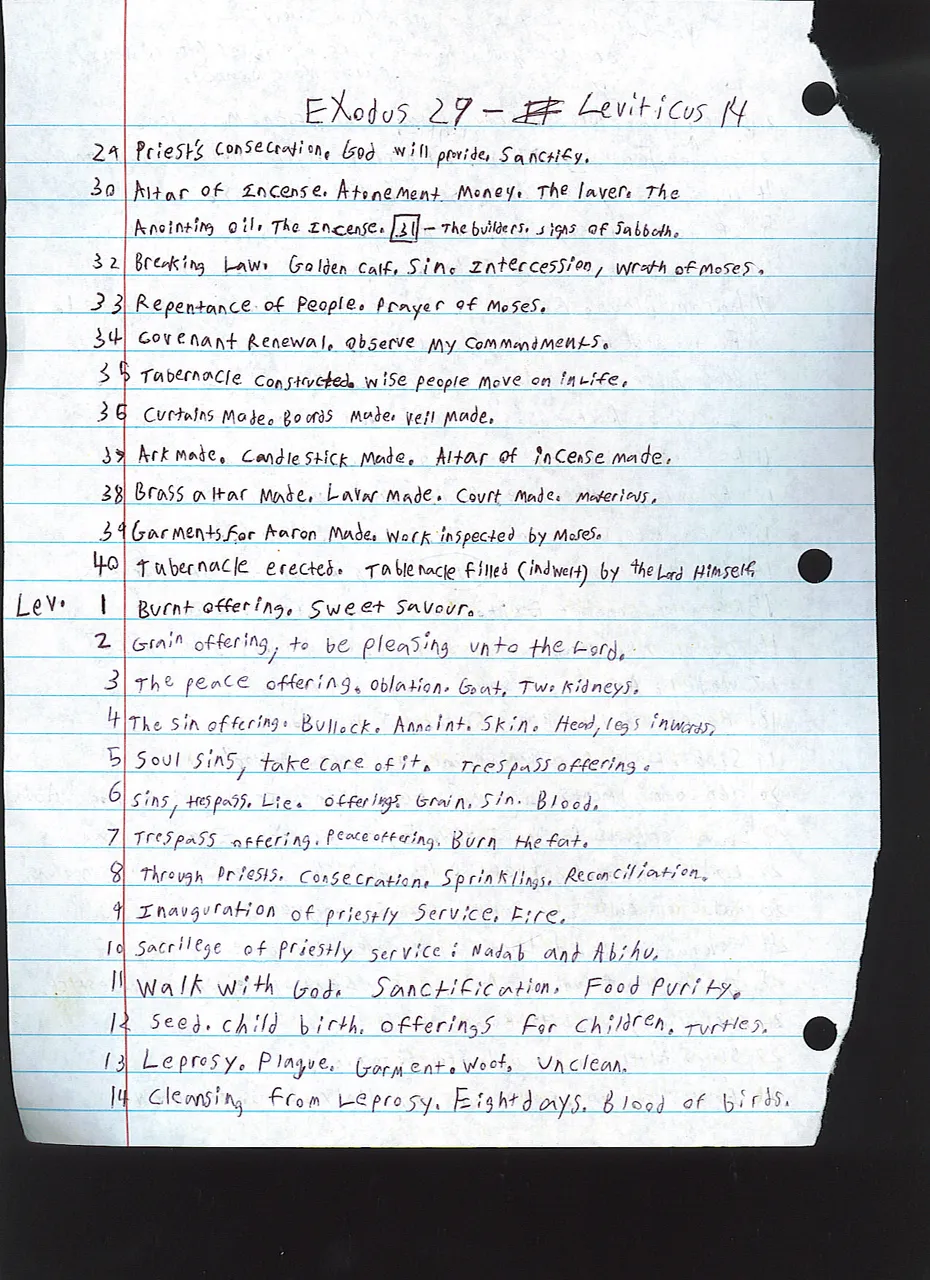 Exodus 29 - Leviticus 14
29 Priest's consecration. God will provide. Sanctify.
30 Altar of Incense. Atonement Money. The laver. The
Anointing oil. The Incense. 31 - The builders. signs of Sabbath.
32 Breaking Law. Golden calf. Sin. Intercession, wrath of Moses.
33 Repentance of People. Prayer of Moses.
34 Covenant Renewal. Observe My Commandments.
35 Tabernacle constructed. wise people move on in Life.
36 Curtains Made. Boards Made. veil Made.
37 Ark made. Candlestick Made. Altar of incense made.
38 Brass altar Made. Lavar Made. Court made. materials.
39 Garments for Aaron Made. Work inspected by Moses.
40 Tabernacle erected. Tablenacle filled (indwelt) by the Lord Himself.
Lev. 1 Burnt offering. Sweet savour.
2 Grain offering, to be pleasing unto the Lord.
3 The peace offering. Oblation. Goat. Two Kidneys.
4 The sin offering. Bullock. Annoint. Skin. Head, legs inwards.
5 Soul sins, take care of it. Trespass offering.
6 Sins, trespass. Lie. offerings Grain. Sin. Blood.
7 Trespass offering. Peace offering. Burn the fat.
8 Through Priests. Consecration. Sprinklings. Reconciliation.
9 Inauguration of priestly Service. Fire.
10 Sacrilege of Priestly service: Nadab and Abihu.
11 Walk with God. Sanctification. Food Purity.
12 Seed. child birth. offerings for children. Turtles.
13 Leprosy. Plague. Garment. Woof. Unclean.
14 Cleansing from Leprosy. Eight days. Blood of birds.